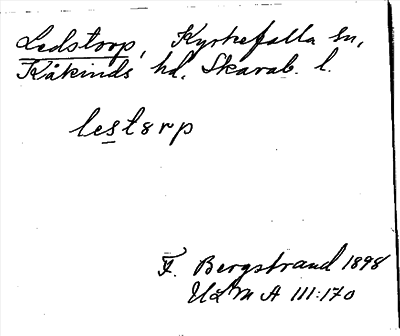 Ledstorp, Kyrkefalla sn,
Kåkinds hd, Skarab. l.
lestɵrp
F. Bergstrand 1898
ULMA 111:170